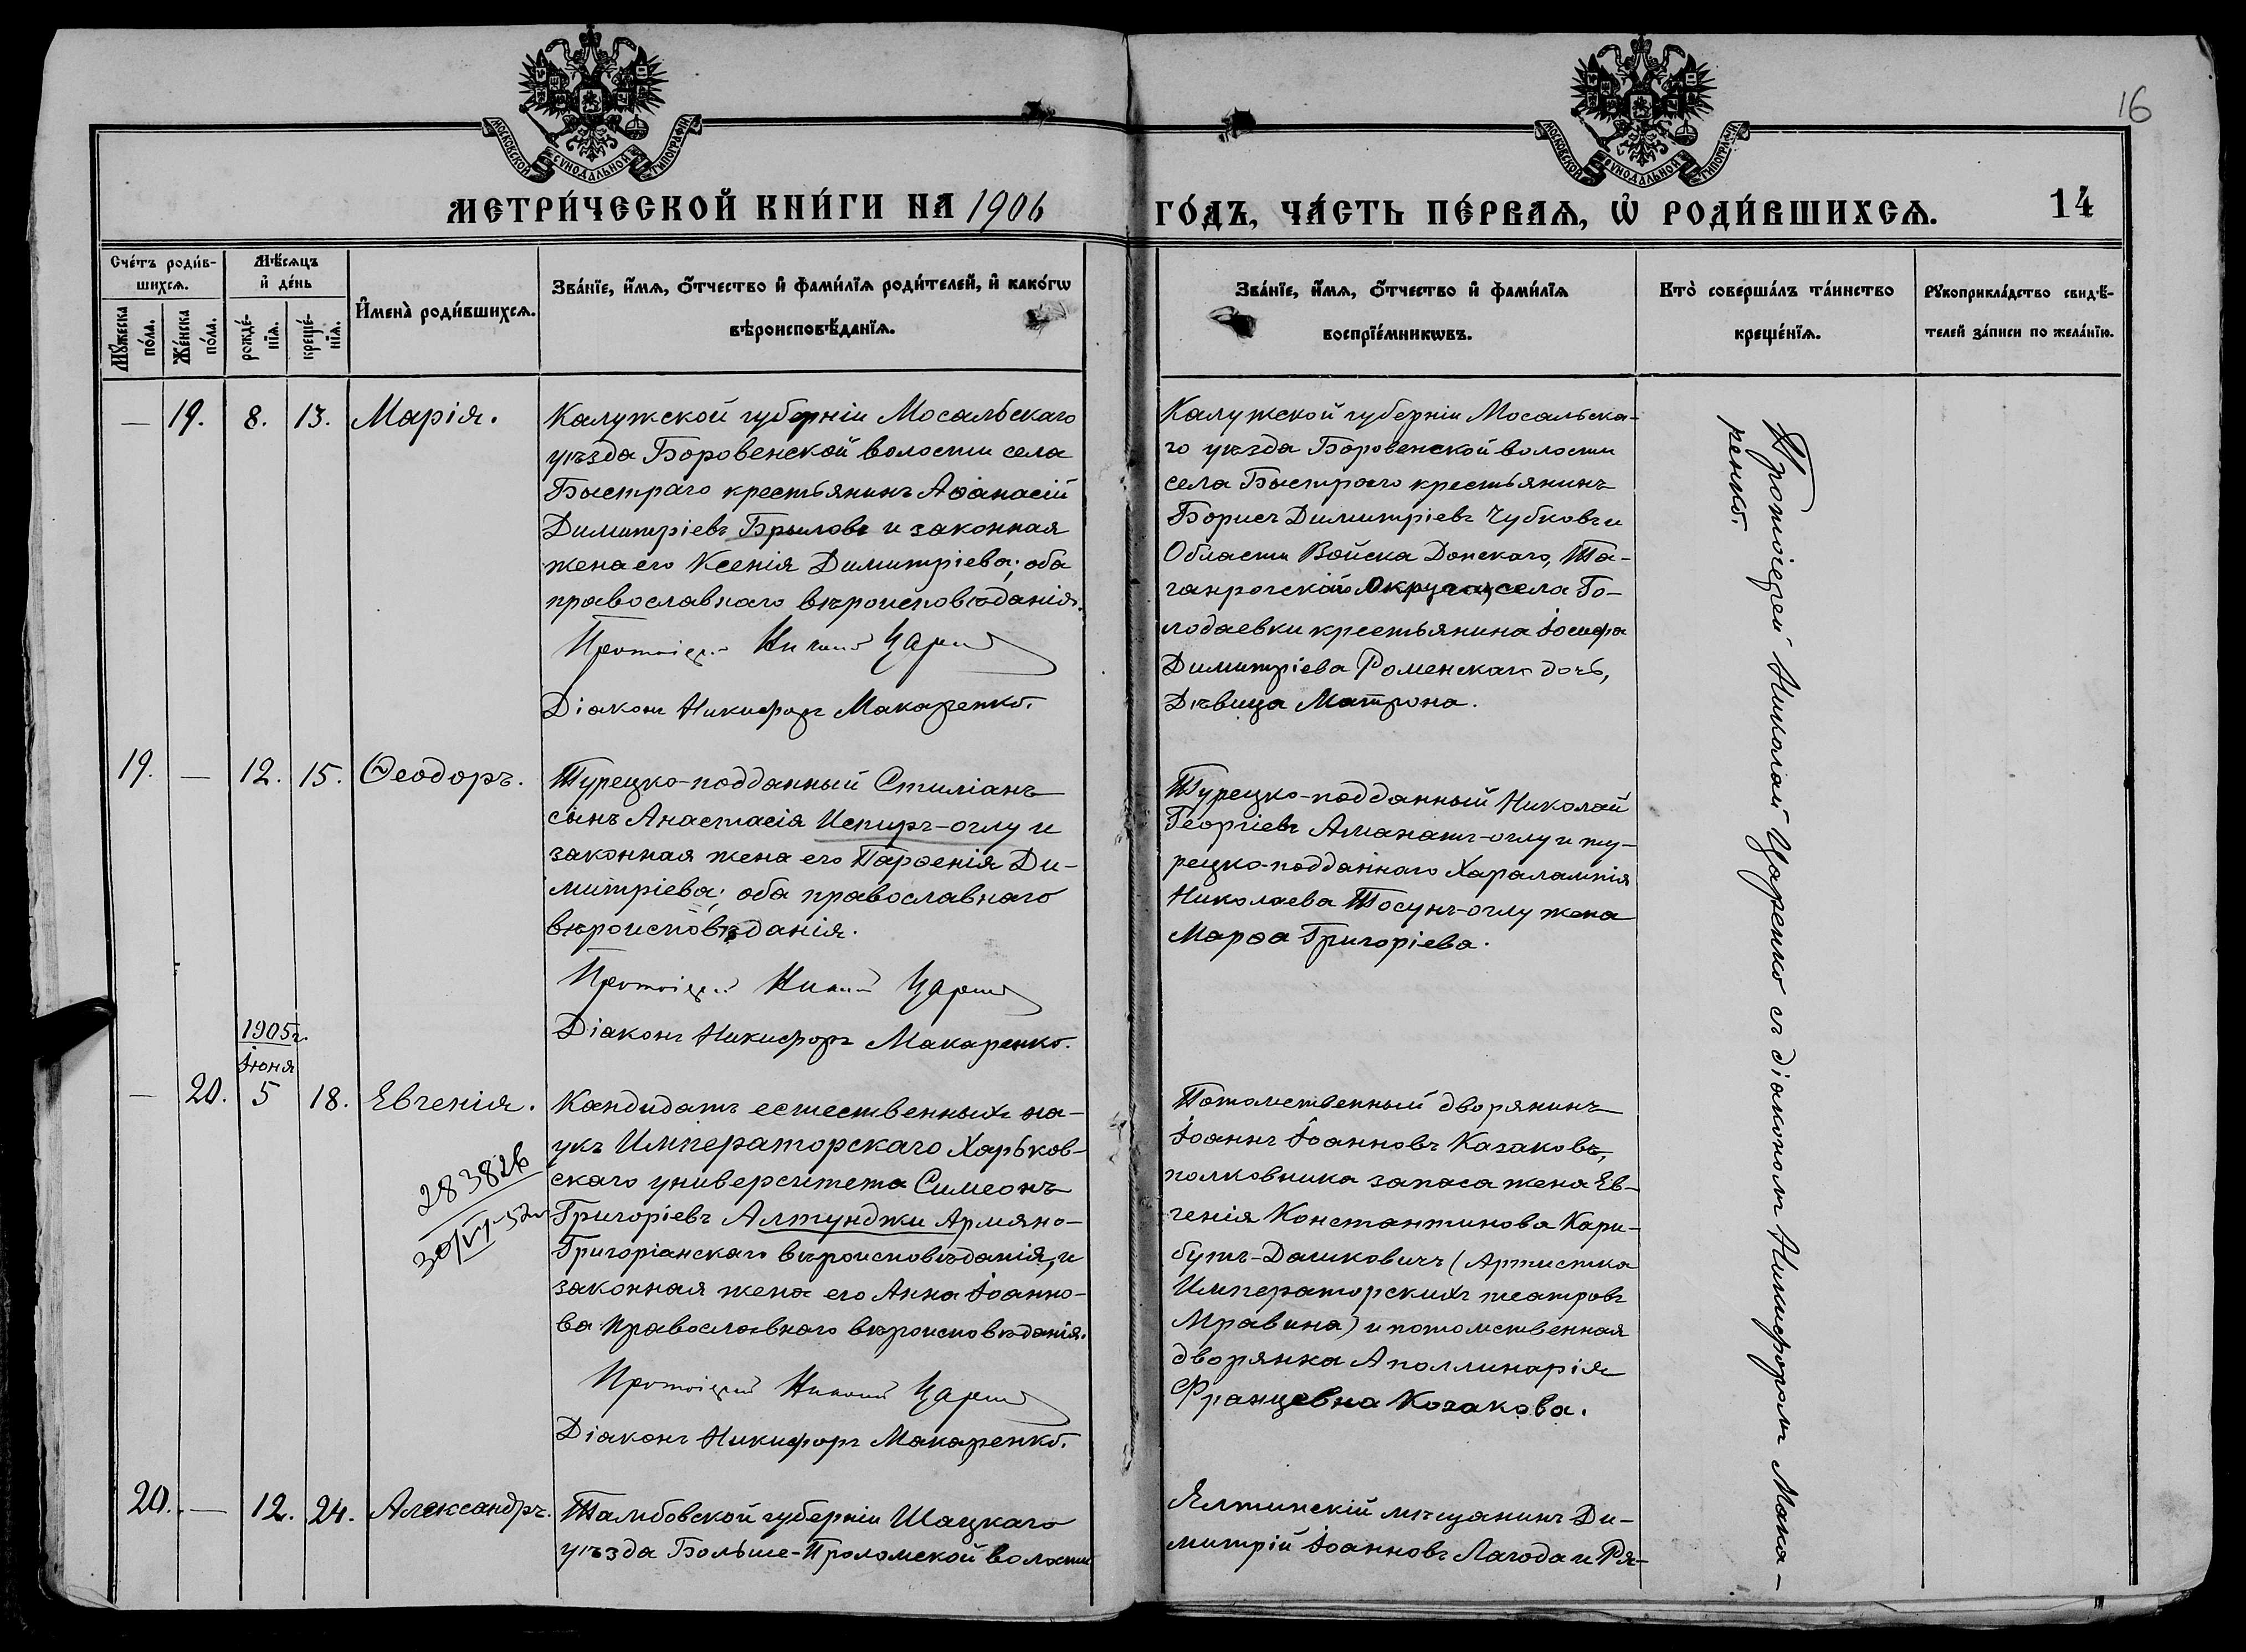 16
МОСКОВСКОЙ СѴНОДАЛЬНОЙ ТИПОГРАФІИ
МОСКОВСКОЙ СѴНОДАЛЬНОЙ ТИПОГРАФІИ
МЕТРИ́ЧЕСКОЙ КНИ́ГИ НА 1906
ГО́ДЪ, ЧА́СТЬ ПЕ́РВАѦ, Ѡ҆ РОДИ́ВШИХСѦ.
14
Сче́тъ роди́в-
шихсѧ.
Мꙋ́жеска
по́ла.
Же́нска
по́ла.
Мѣ́сѧцъ
и҆ де́нь
рожде́-
нїѧ.
креще́-
нїѧ.
И҆мена̀ роди́вшихсѧ.
Зва́нїе, и҆́мѧ, ѻ҆́тчество и҆ фами́лїѧ роди́телей, и҆ како́гѡ
вѣроисповѣ́данїѧ.
Зва́нїе, и҆́мѧ, ѻ҆́тчество и҆ фами́лїѧ
воспрїе́мникѡвъ.
Кто̀ соверша́лъ та́инство
креще́нїѧ.
Рꙋкоприкла́дство свидѣ́-
телей за́писи по жела́нїю.
— 19. 8. 13. Марія.
Калужской губерніи Мосальскаго
уѣзда Боровенской волости села
Быстраго крестьянинъ Аѳанасій
Димитріевъ Брыловъ и законная
жена его Ксенія Димитріева; оба
православнаго вѣроисповѣданія.
Протоіерей Николай Царенко
Діаконъ Никифоръ Макаренко.
Калужской губерніи Мосальска-
го уѣзда Боровенской волости
села Быстраго крестьянинъ
Борисъ Димитріевъ Чубковъ и
Области Войска Донскаго, Та-
ганрогскаго Округа, села Го-
лодаевки крестьянина Іосифа
Димитріева Роменскаго дочь,
Дѣвица Матрона.
Протоіерей Николай Царенко съ діакономъ Никифоромъ Мака-
ренко.
19. — 12. 15. Ѳеодоръ.
Турецко-подданный Стиліанъ
сынъ Анастасія Испиръ-оглу и
законная жена его Парѳенія Ди-
митріева; оба православнаго
вѣроисповѣданія.
Протоіерей Николай Царенко
Діаконъ Никифоръ Макаренко.
Турецко-подданный Николай
Георгіевъ Аманатъ-оглу и ту-
рецко-подданнаго Харалампія
Николаева Тосунъ-оглу жена
Марѳа Григоріева.
1905 г.
Іюня
— 20. 5 18. Евгенія.
283826
30/VI-52г
Кандидатъ естественныхъ на-
укъ Императорскаго Харьков-
скаго университета Симеонъ
Григоріевъ Алтунджи Армяно-
Григоріанскаго вѣроисповѣданія, и
законная жена его Анна Іоанно-
ва Православнаго вѣроисповѣданія.
Протоіерей Николай Царенко
Діаконъ Никифоръ Макаренко.
Потомственный дворянинъ
Іоаннъ Іоанновъ Казаковъ,
полковника запаса жена Ев-
генія Константинова Кари-
бутъ-Дашковичъ (Артистка
Императорскихъ театровъ
Мравина) и потомственная
дворянка Аполлинарія
Францевна Козакова.
20. — 12. 24. Александръ.
Тамбовской губерніи Шацкаго
уѣзда Больше-Проломской волости
Ялтинскій мѣщанинъ Ди-
митрій Іоанновъ Лагода и Ря-